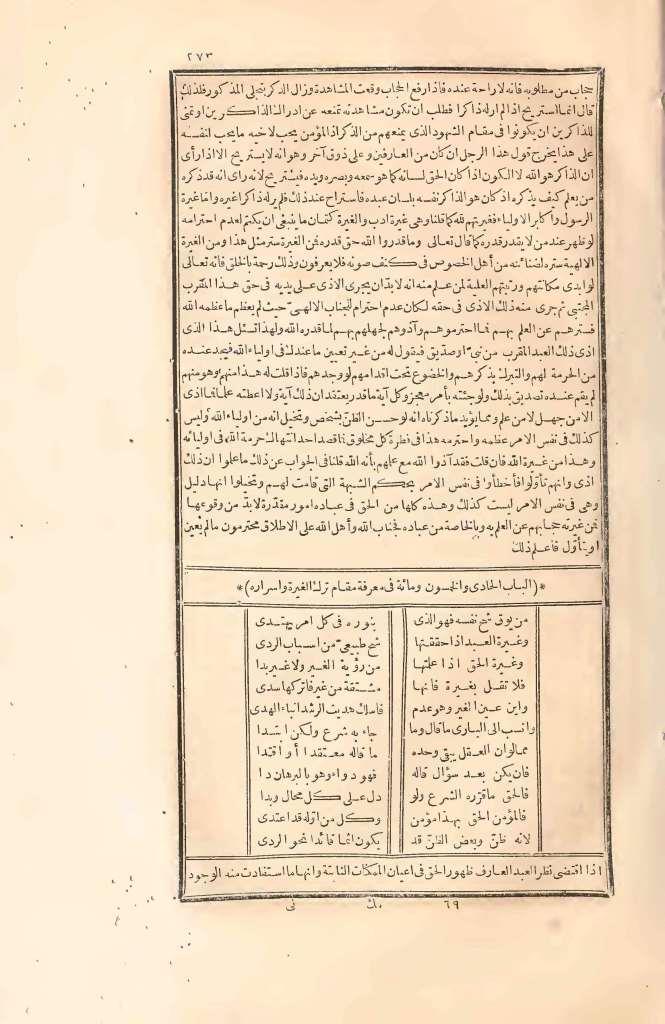 ٢٧٣
حجاب من مطلوبه فانه لا راحة عنده فاذا رفع الحجاب وقعت المشاهدة وزال الذكر بتجلى المذكور فلذلك
قال انما استريح اذا لم ار له ذاكرا فطلب ان تكون مشاهدته تمنعه عن ادراك الذاكرين او تمنى
للذاكرين ان يكونوا فى مقام الشهود الذى يمنعهم من الذكر اذ المؤمن يحب لاخيه ما يحب لنفسه
على هذا يخرج قول هذا الرجل ان كان من العارفين وعلى ذوق آخر وهو انه لا يستريح الا اذا رأى
ان الذاكر هو الله لا الكون اذا كان الحق لسانه كما هو سمعه وبصره ويده فيستريح لانه راى انه قد ذكره
من يعلم كيف يذكره اذ كان هو الذاكر نفسه بلسان عبده فاستراح عند ذلك فلم ير له ذاكرا غيره واما غيرة
الرسول وأكابر الاولياء فغيرتهم لله كما قلنا وهى غيرة ادب والغيرة كتمان ما ينبغى ان يكتم لعدم احترامه
لو ظهر عند من لا يقدر قدره كما قال تعالى وما قدروا الله حق قدره فمن الغيرة ستر مثل هذا ومن الغيرة
الالهية ستره لضنائنه من أهل الخصوص فى كنف صونه فلا يعرفون وذلك رحمة بالخلق فانه تعالى
لو ابدى مكانتهم ورتبتهم العلية لمن علم منه انه لا بد ان يجرى الاذى على يديه فى حق هذا المقرب
المجتبى ثم جرى منه ذلك الاذى فى حقه لكان عدم احترام للجناب الالهى حيث لم يعظم ما عظمه الله
فسترهم عن العلم بهم فما احترموهم وآذوهم لجهلهم بهم لما قدره الله ولهذا تسئل هذا الذى
اذى ذلك العبد المقرب من نبى او صديق فيقول له من غير تعيين ما عندك فى اولياء الله فيجد عنده
من الحرمة لهم والتبرك بذكرهم والخضوع تحت اقدامهم لو وجدهم فاذا قلت له هذا منهم وهو منهم
لم يقم عنده تصديق بذلك ولو جئته بأمر معجز وكل آية ما قدر يعتقد ان ذلك آية ولا اعطته علما فما اذى
الا من جهل لا من علم ومما يؤيد ما ذكرناه انه لو حسن الظن بشخص وتخيل انه من اولياء الله وليس
كذلك فى نفس الامر عظمه واحترمه هذا فى فطرة كل مخلوق فما قصد احد انتهاك حرمة الله فى اوليائه
وهذا من غيرة الله فان قلت فقد آذوا الله مع علمهم بأنه الله قلنا فى الجواب عن ذلك ما علموا ان ذلك
اذى وانهم تأولوا فأخطأوا فى نفس الامر بحكم الشبهة التى قامت لهم وتخيلوا انها دليل
وهى فى نفس الامر ليست كذلك وهذه كلها من الحق فى عباده امور مقدرة لا بد من وقوعها
فمن غيرته حجابهم عن العلم به وبالخاصة من عباده فجناب الله وأهل الله على الاطلاق محترمون ما لم يعين
او يتأول فاعلم ذلك
*(الباب الحادى والخمسون ومائة فى معرفة مقام ترك الغيرة واسراره)*
من يوق شح نفسه فهو الذى بنوره فى كل امر يهتدى
وغيرة العبد اذا حققتها شح طبيعى من اسباب الردى
وغيرة الحق اذا علمتها من رؤية الغير ولا غير بدا
فلا تقل بغيرة فانها مشتقة من غير فاتركها سدى
واين عين الغير وهو عدم فاسلك هديت الرشد انباء الهدى
وانسب الى البارى ما قال وما جاء به شرع ولكن ابتدا
مما لو ان العقل يبقى وحده ما قاله معتقدا أو اقتدا
فان يكن بعد سؤال قاله فهو دواء وهو بالبرهان دا
فالحق ما قرره الشرع ولو دل على كل محال وبدا
فالمؤمن الحق بهذا مؤمن وكل من اوله قد اعتدى
لانه ظن وبعض الظن قد يكون انما قائدا نحو الردى
اذا اقتضى نظر العبد العارف ظهور الحق فى اعيان الممكنات الثابتة وانها ما استفادت منه الوجود
٦٩ مك نى